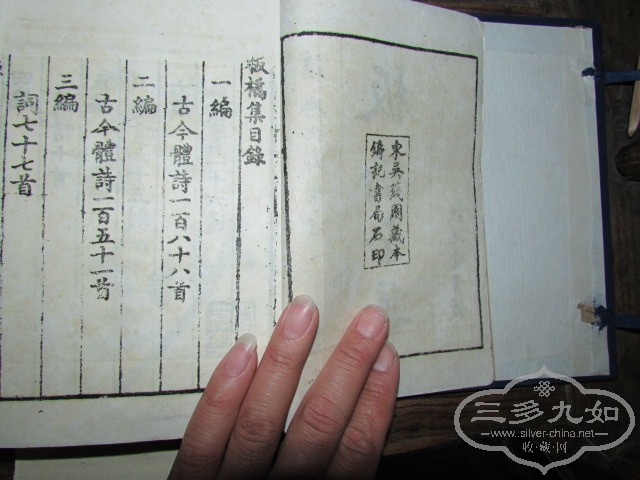 東吳藏本
鑄記書局石印
板橋集目錄
一編
古今體詩一百六十八首
二編
古今體詩一百五十一首
三編
詞七十七首
三多九如
www.silver-china.net
收·藏·网